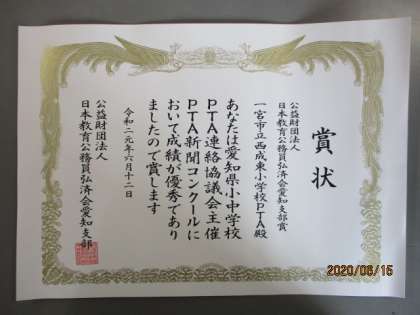 賞状
公益財団法人
日本教育公務員弘済会愛知支部賞
一宮市立西成東小学校PTA殿
あなたは愛知県小中学校
PTA連絡協議会主催
PTA新聞コンクールに
おいて成績が優秀であり
ましたので賞します
令和二元年六月十二日
公益財団法人
日本教育公務員弘済会愛知支部
2020/06/15